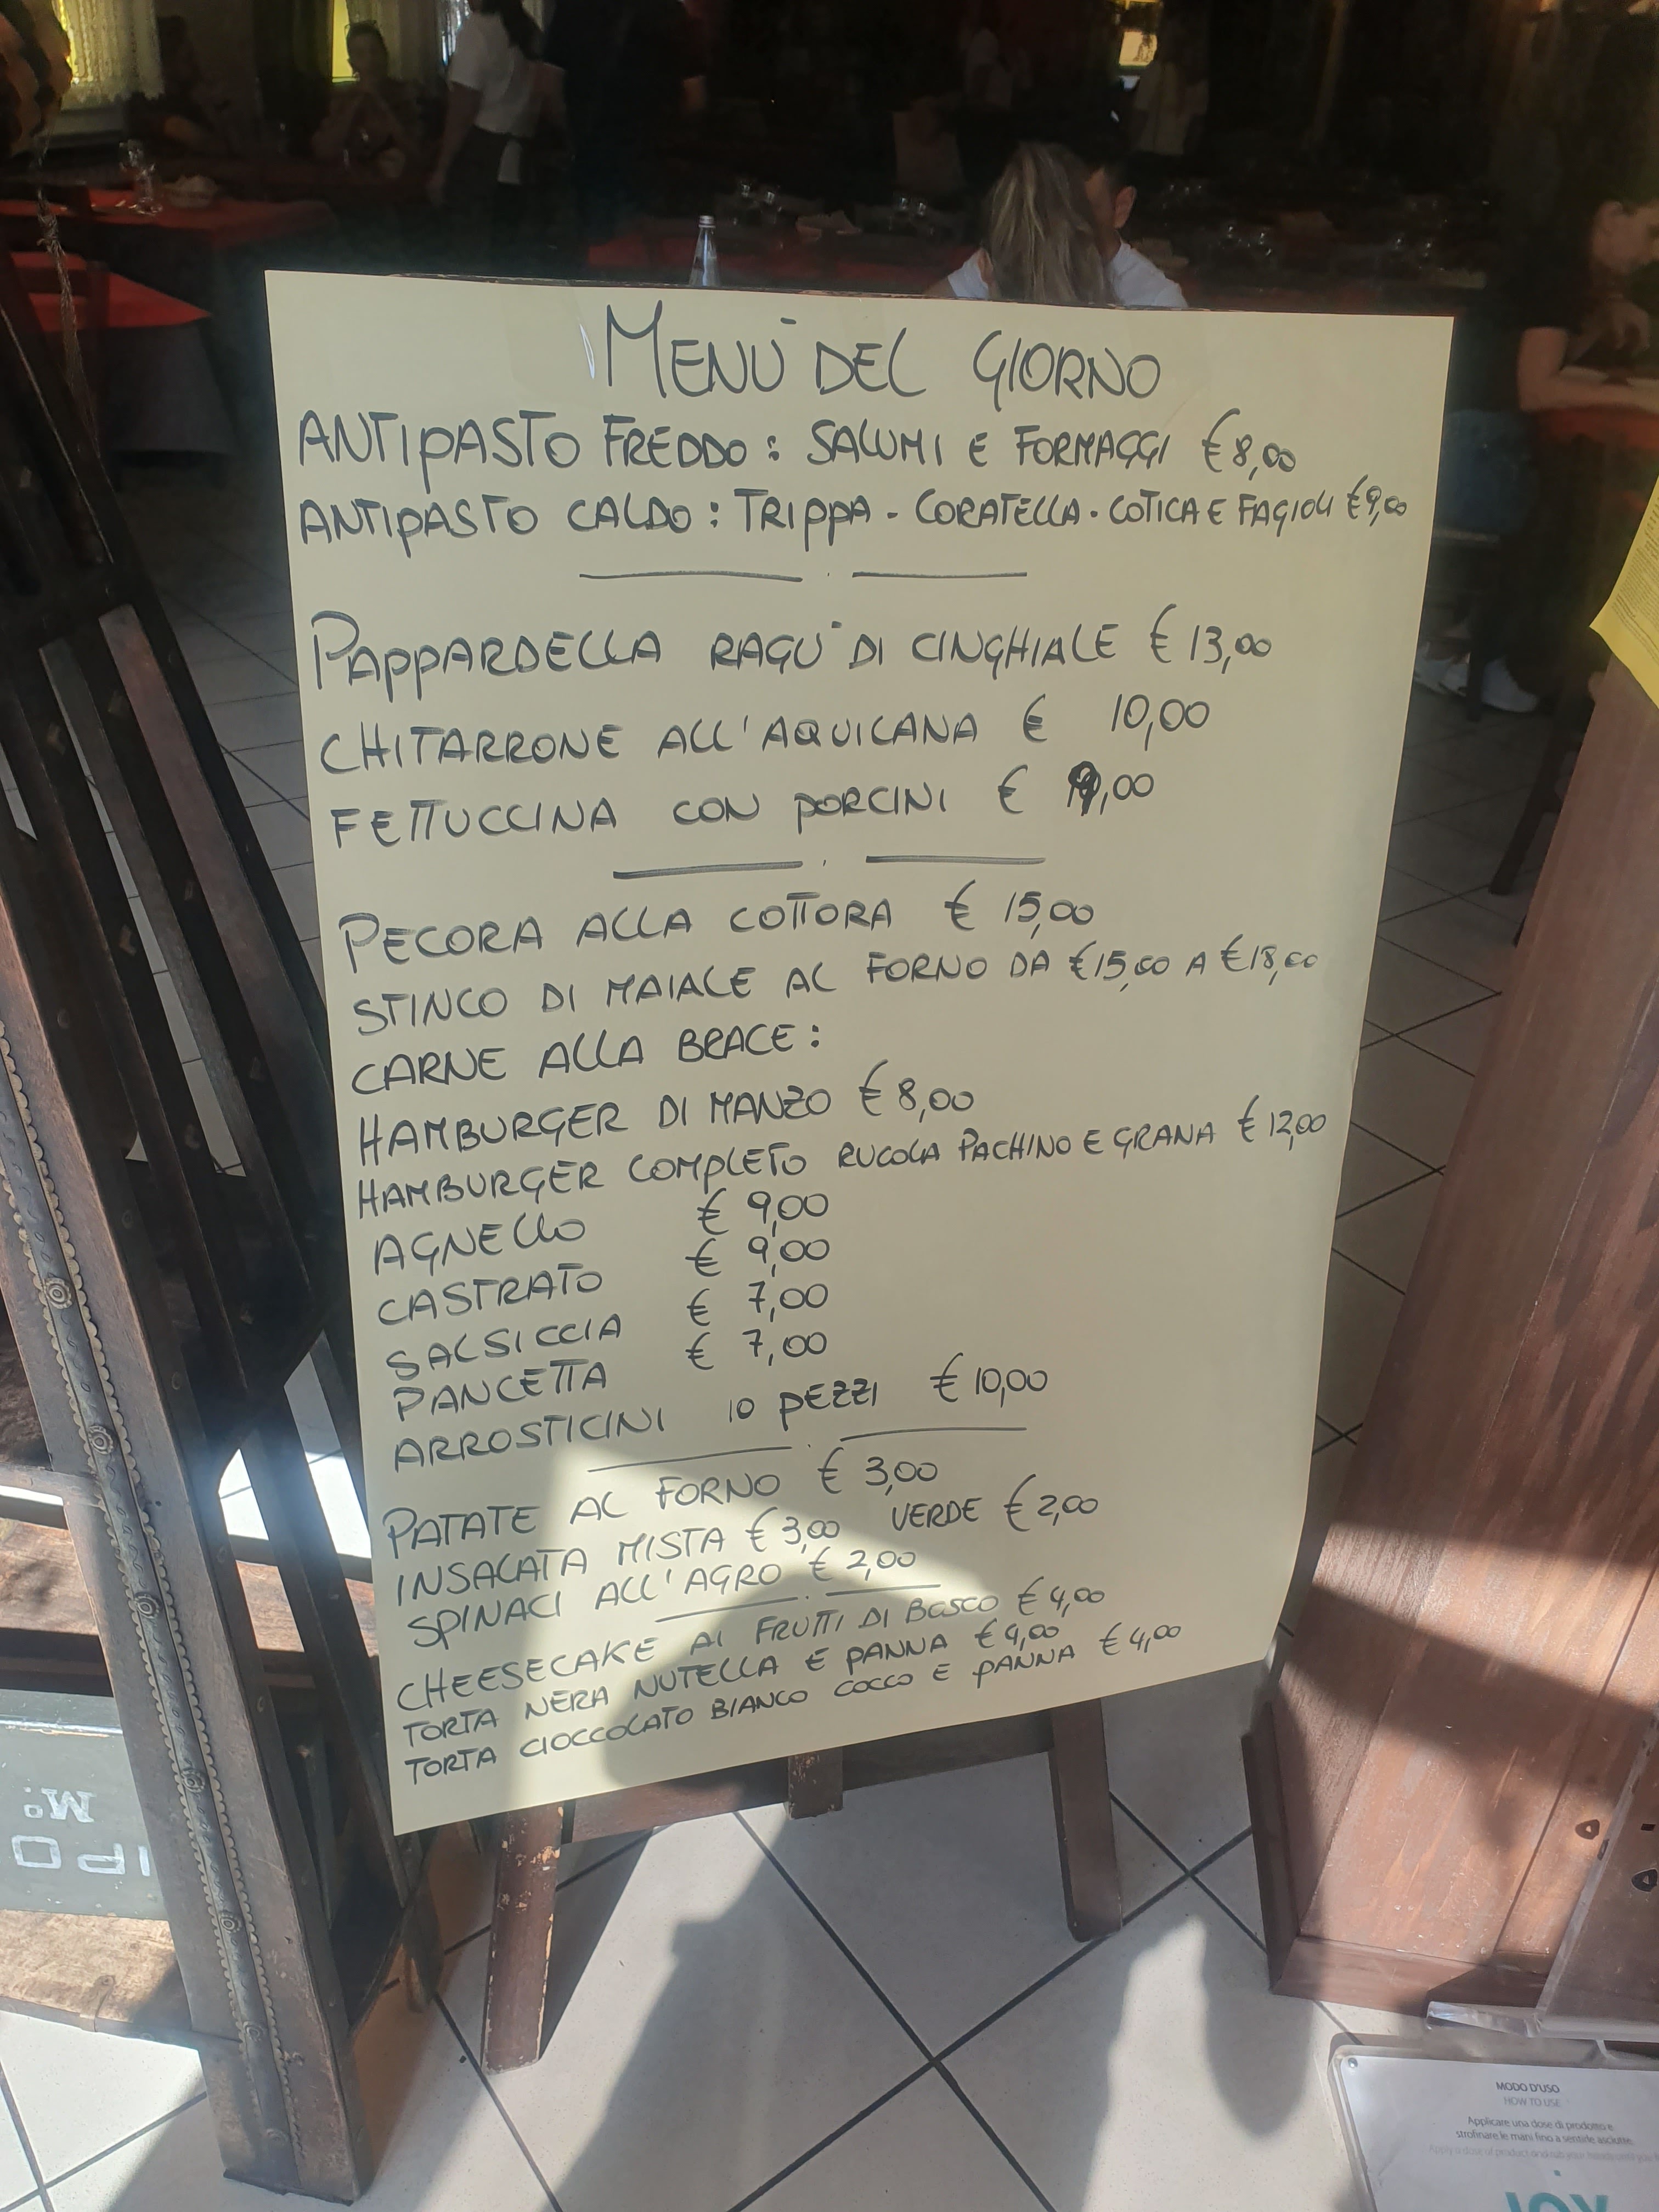 MENÙ DEL GIORNO
ANTIPASTO FREDDO: SALUMI E FORMAGGI €8,00
ANTIPASTO CALDO: TRIPPA - CORATELLA - COTICA E FAGIOLI €9,00
PAPPARDELLA RAGÙ DI CINGHIALE € 13,00
CHITARRONE ALL'AQUILANA € 10,00
FETTUCCINA CON PORCINI € 9,00
PECORA ALLA COTTORA € 15,00
STINCO DI MAIALE AL FORNO DA €15,00 A €18,00
CARNE ALLA BRACE:
HAMBURGER DI MANZO €8,00
HAMBURGER COMPLETO RUCOLA PACHINO E GRANA €12,00
AGNELLO € 9,00
CASTRATO € 9,00
SALSICCIA € 7,00
PANCETTA € 7,00
ARROSTICINI 10 PEZZI € 10,00
PATATE AL FORNO € 3,00
INSALATA MISTA €3,00 VERDE €2,00
SPINACI ALL'AGRO € 2,00
CHEESECAKE AI FRUTTI DI BOSCO €4,00
TORTA NERA NUTELLA E PANNA €4,00
TORTA CIOCCOLATO BIANCO COCCO E PANNA €4,00
Mo
IPO
MODO D'USO
HOW TO USE
Applicare una dose di prodotto e
strofinare le mani fino a sentirle asciutte.